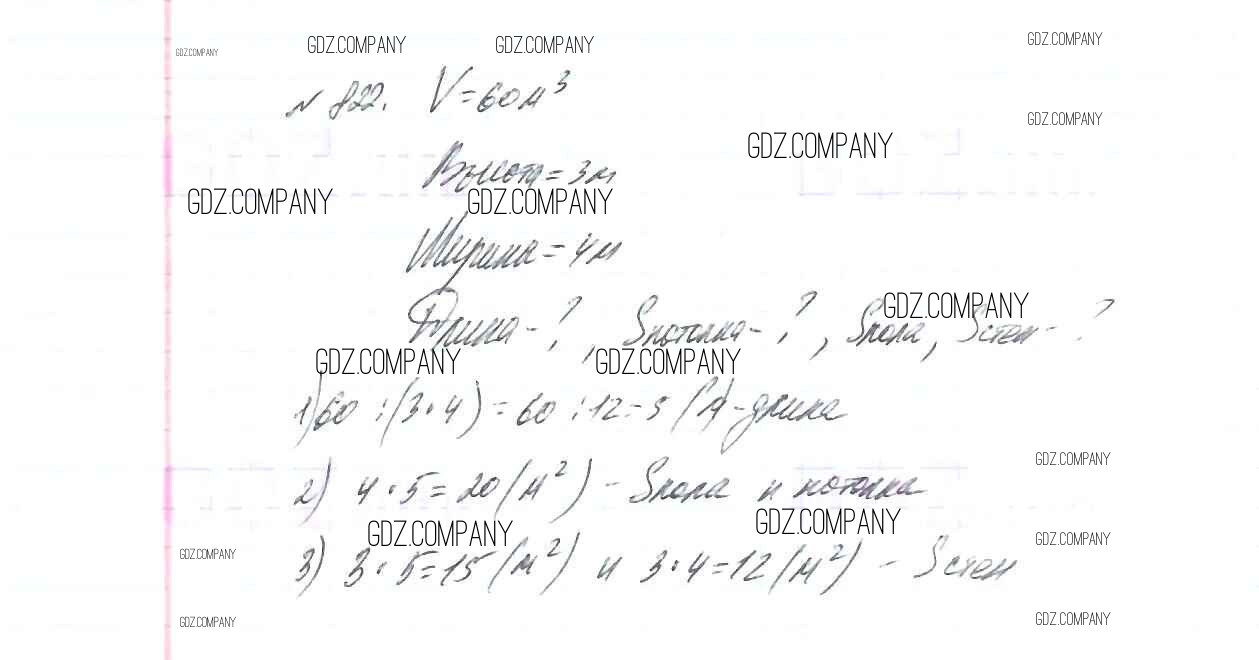 GDZ.COMPANY GDZ.COMPANY GDZ.COMPANY GDZ.COMPANY
№ 822. V=60м³
GDZ.COMPANY
GDZ.COMPANY
Высота=3м
GDZ.COMPANY GDZ.COMPANY
Ширина=4м
GDZ.COMPANY
Длина-?, Sпотолка-?, Sпола, Sстен-?
GDZ.COMPANY GDZ.COMPANY
1) 60:(3·4)=60:12=5(м)-длина
GDZ.COMPANY
2) 4·5=20(м²) - Sпола и потолка
GDZ.COMPANY GDZ.COMPANY
GDZ.COMPANY GDZ.COMPANY
3) 3·5=15(м²) и 3·4=12(м²) - Sстен
GDZ.COMPANY GDZ.COMPANY